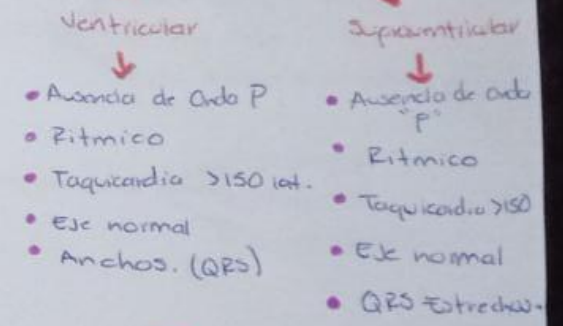 Ventricular
• Ausencia de Onda P
• Ritmico
• Taquicardia >150 lat.
• Eje normal
• Anchos. (QRS)
Supraventricular
• Ausencia de onda
"P"
• Ritmico
• Taquicardia >150
• Eje normal
• QRS Estrechos.